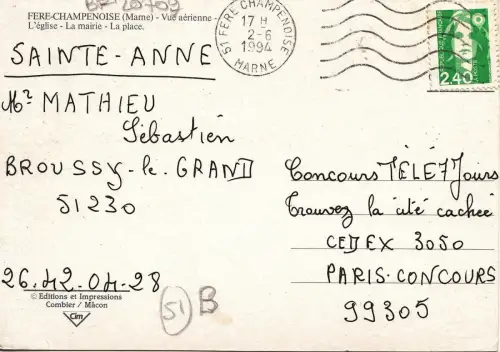 BF-28709
FERE-CHAMPENOISE (Marne) - Vue aérienne -
L'église - La mairie - La place.
SAINTE-ANNE
Mr MATHIEU
Sébastien
BROUSSY-le-GRAND
51230
26.42.04.28
© Editions et Impressions
Combier / Mâcon
Cim
51
B
51 FERE CHAMPENOISE
17 H
2-6
1994
MARNE
2,40
Concours TÉLÉ 7 Jours
Trouvez la cité cachée
CEDEX 3050
PARIS-CONCOURS
99305